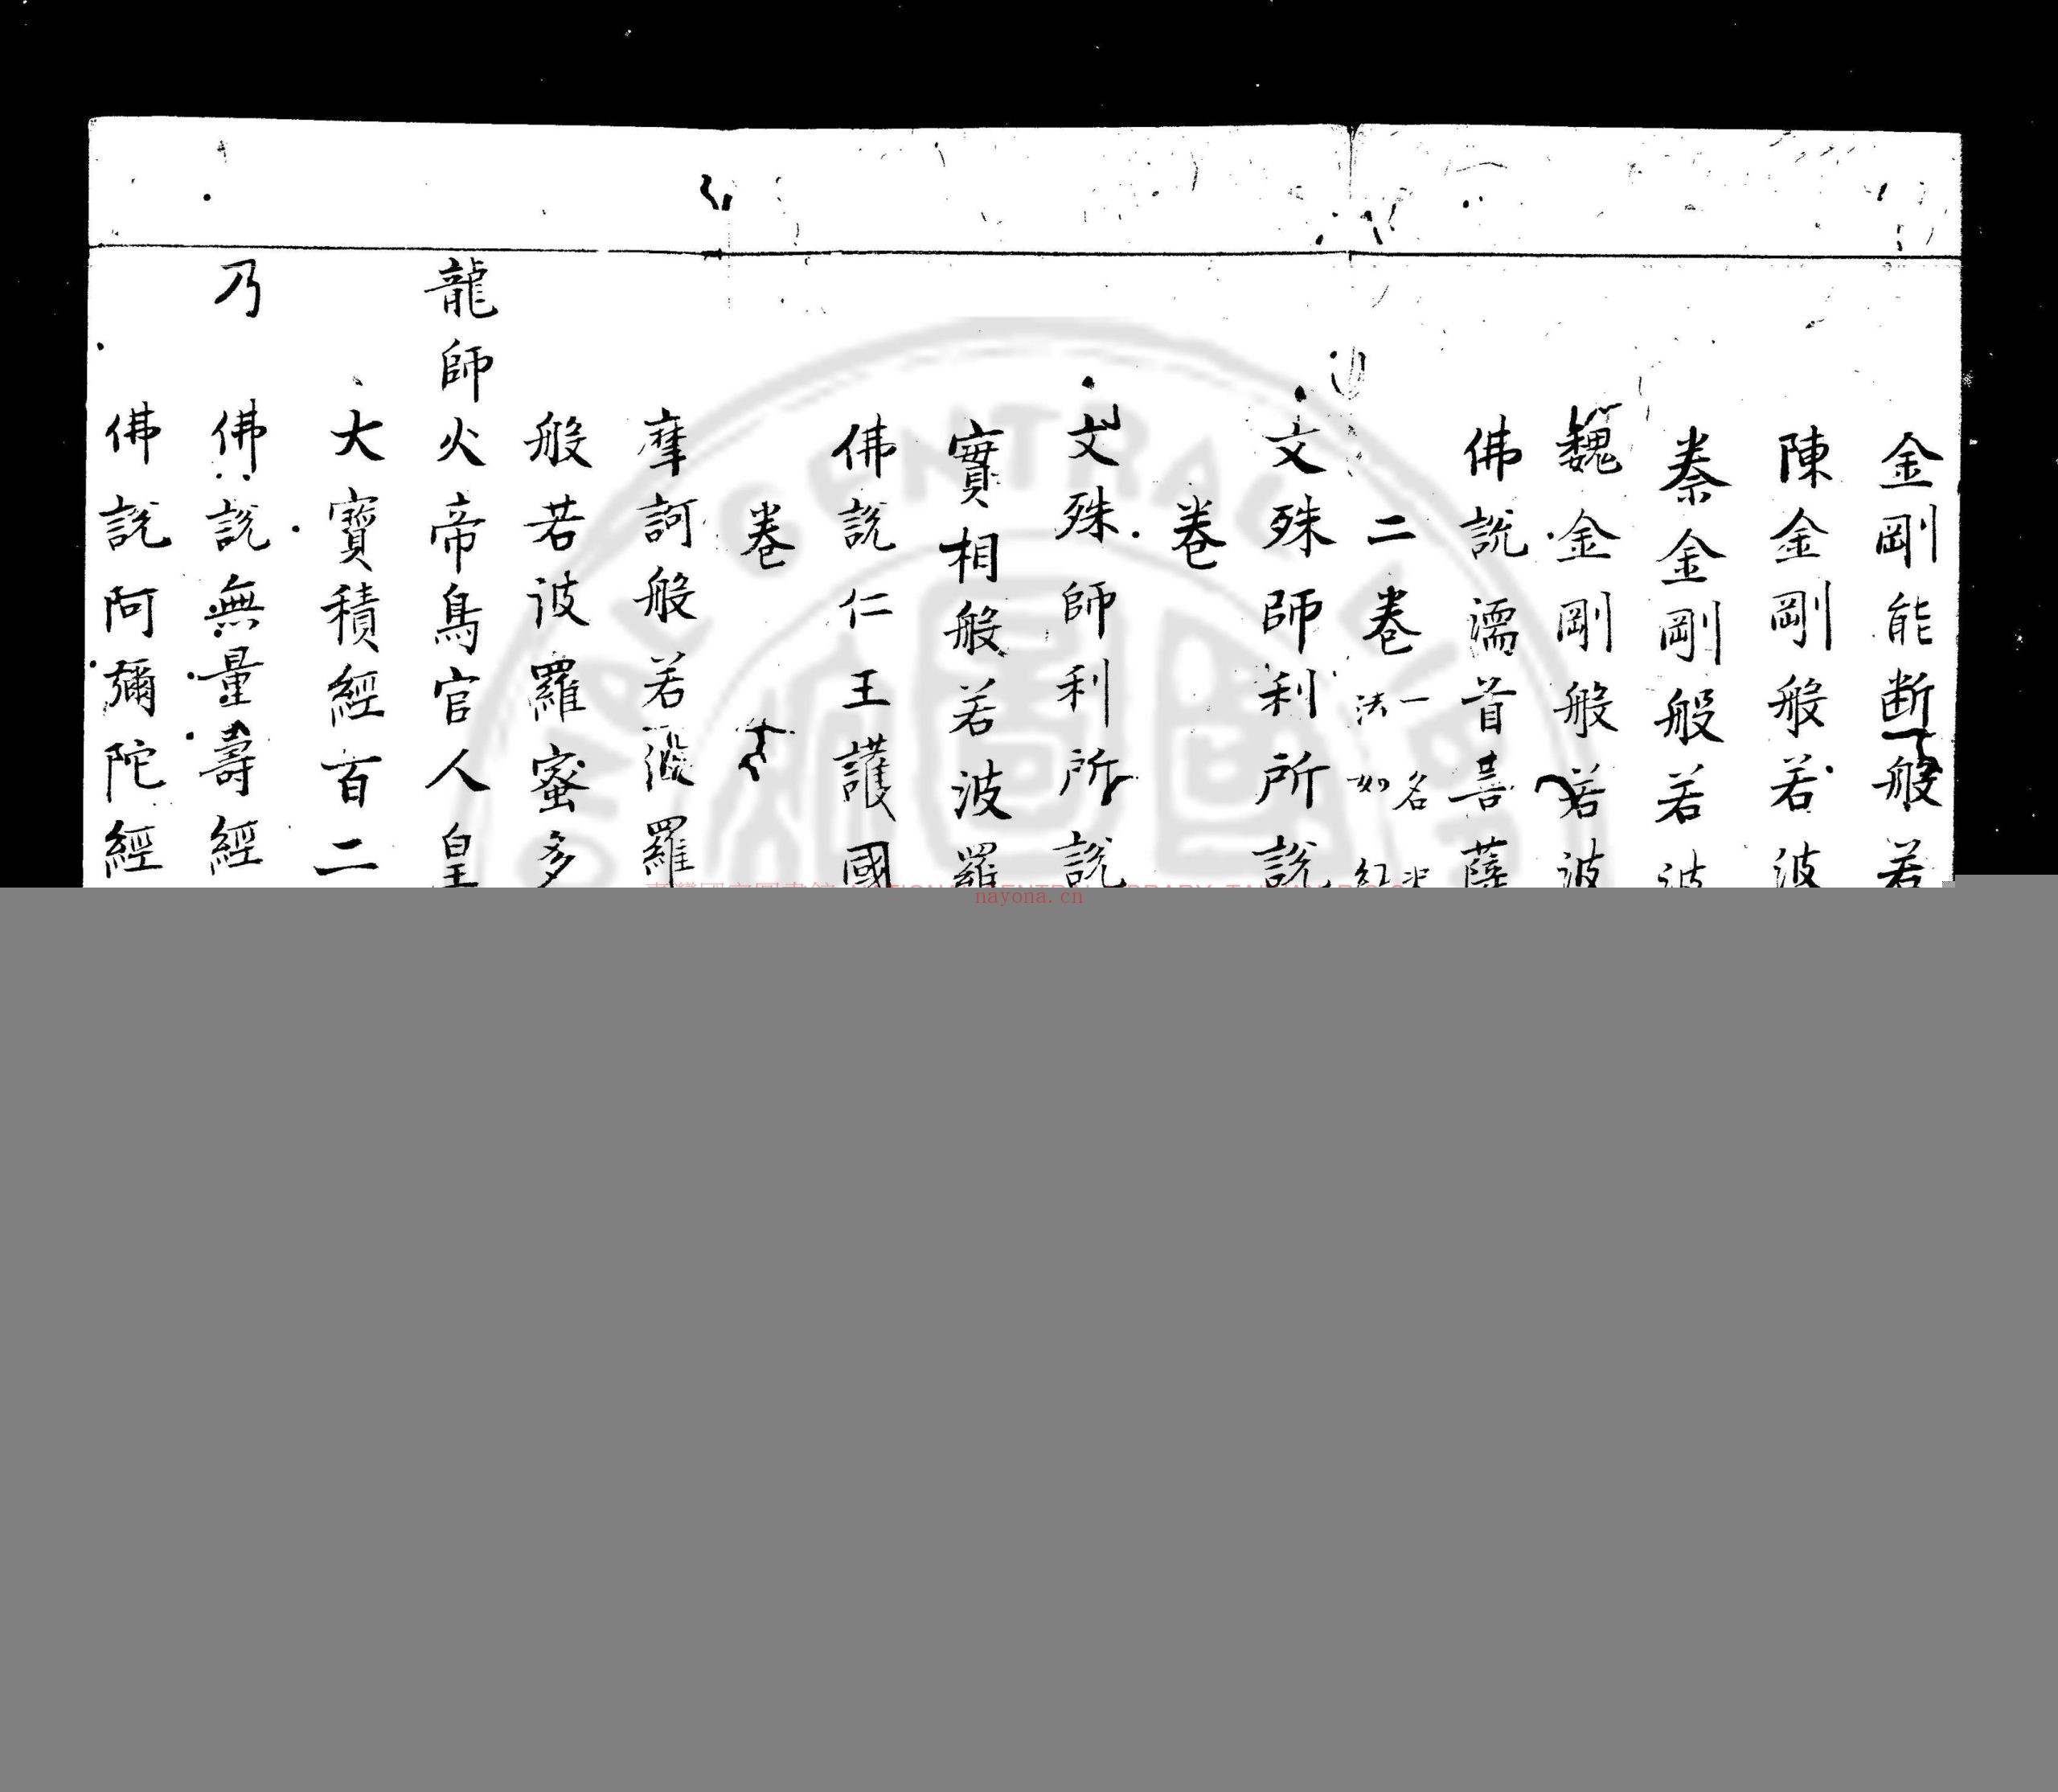 金剛能断般若
陳金剛般若波
秦金剛般若波
魏金剛般若波
佛說濡首菩薩
二卷 一名
法如
文殊師利所說
卷
文殊師利所說
實相般若波羅
佛說仁王護國
卷
摩訶般若波羅
般若波羅蜜多
龍師火帝鳥官人皇
大寶積經百二
乃 佛說無量壽經
佛說阿彌陀經
nayona.cn